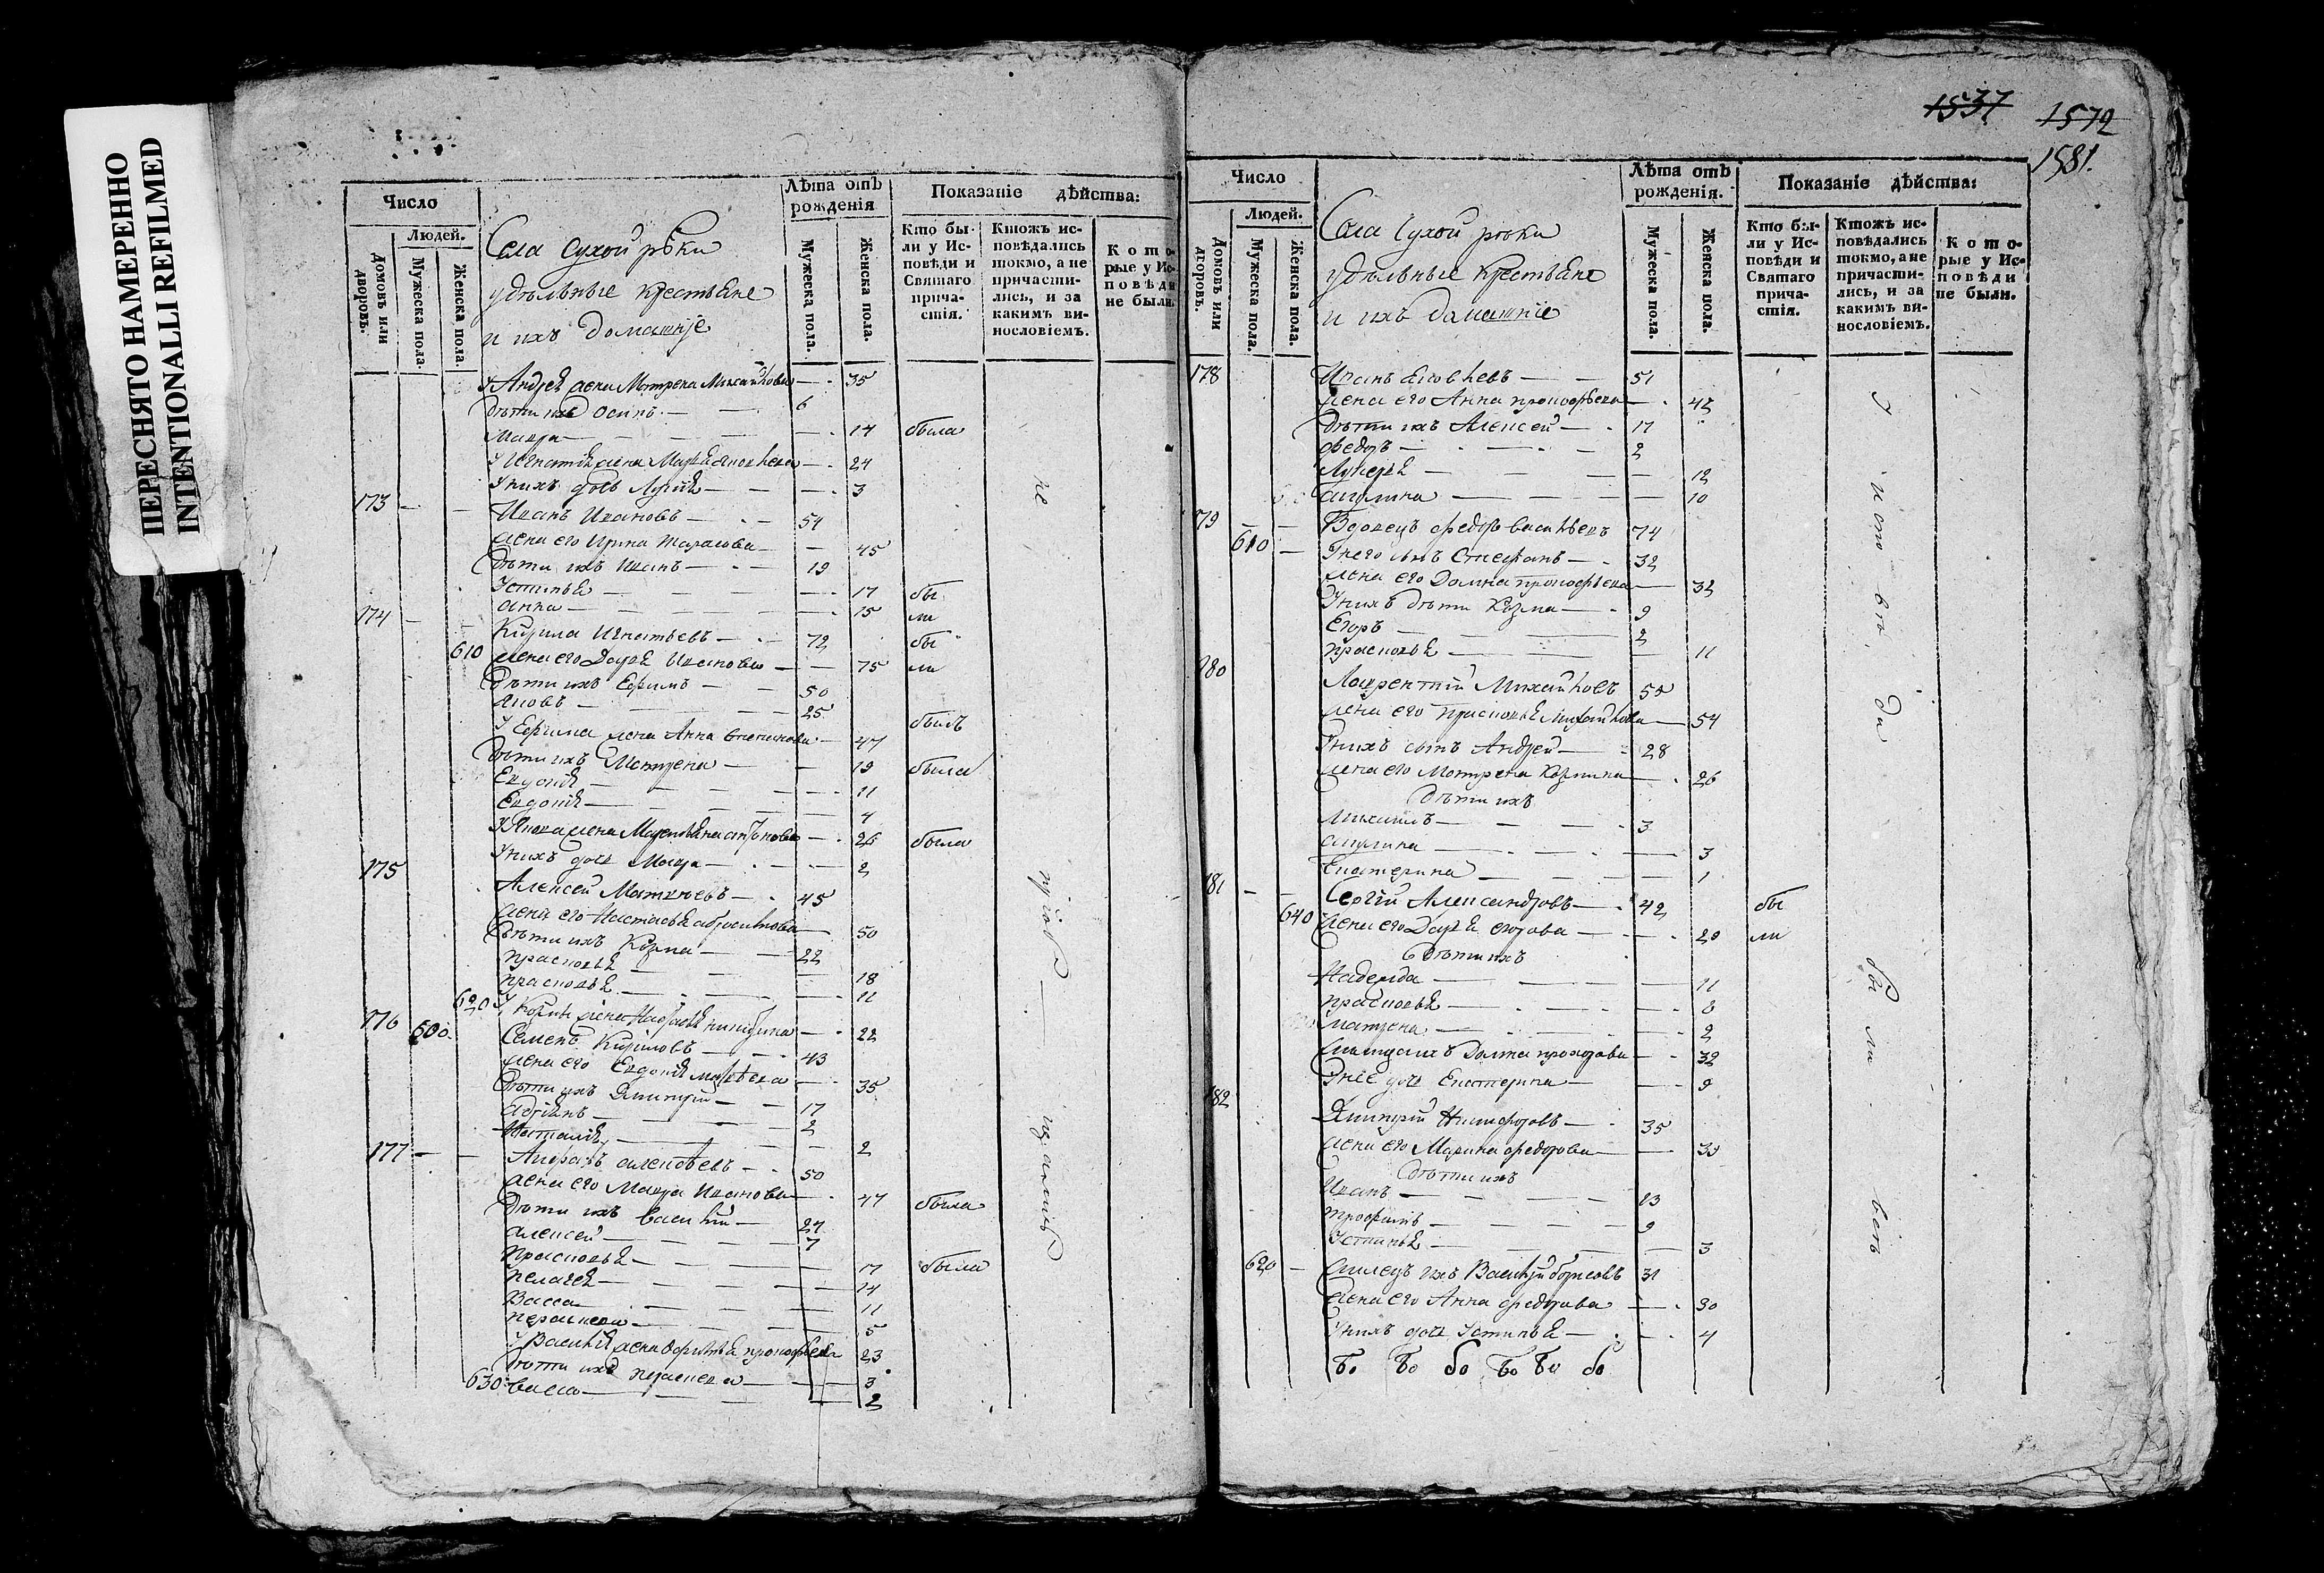 ПЕРЕСНЯТО НАМЕРЕННО
INTENTIONALLI REFILMED
Число
Людей.
Домовъ или дворовъ.
Мужеска пола
Женска пола.
Села Сухой рѣки
удѣльные крестьяне
и ихъ домашніе
Лѣта отъ рожденія
Мужеска пола.
Женска пола.
Показаніе дѣйства:
Кто бы-
ли у Ис-
повѣди и
Святаго
прича-
стія.
Ктожъ ис-
повѣдались
токмо, а не
причасти-
лись, и за
какимъ ви-
нословіемъ.
К о т о-
рые у Ис-
п о в ѣ д и
не были.
у Андрея жена Мотрена Михайлова 35
дѣти ихъ Осипъ 6
Мавра 14 была
у Игнатія жена Марья Яковлева 24
у нихъ дочь 3
173 Иванъ Ивановъ 54
жена его Ирина Тарасова 45
дѣти ихъ Иванъ 19
Устинья 17 бы
анна 15 ли
174 Кирила Игнатьевъ 72 бы
610 жена его Дарья Иванова 75 ли
дѣти ихъ Ефимъ 50
Яковъ 25
былъ
у Ефима жена Анна 47
дѣти ихъ Матрена 19 была
Евдокія 11
Евдокія 4
у Якова жена 26 была
у нихъ дочь Мавра 2
175 Алексей Матвѣевъ 45
жена его Настасья 50
дѣти ихъ Козма 22
Прасковья 18
Прасковья 11
620 у Козмы жена 22
176 600. Семенъ Кириловъ 43
жена его Евдокія 35
дѣти ихъ Дмитрий 17
Адріянъ 2
Наталія 2
177 алексѣевъ 50
жена его Мавра Иванова 47 была
дѣти ихъ Василий 24
алексей 7
Прасковья 17 была
Пелагея 14
Васса 11
Парасковья 5
у Василія жена прокофьева 23
дѣти ихъ 3
630 васса 2
не
1537 1572
1581.
Число
Людей.
Домовъ или дворовъ.
Мужеска пола.
Женска пола.
Села Сухой рѣки
удѣльные крестьяне
и ихъ домашніе
Лѣта отъ рожденія.
Мужеска пола.
Женска пола.
Показаніе дѣйства:
Кто бы-
ли у Ис-
повѣди и
Святаго
прича-
стія.
Ктожъ ис-
повѣдались
токмо, а не
причасти-
лись, и за
какимъ ви-
нословіемъ.
К о т о-
рые у Ис-
п о в ѣ д и
не были.
178 Иванъ Яковлевъ 51
жена его Анна прокофьева 42
дѣти ихъ Алексей 17
федоръ 2
Лукерья 12
акулина 10
79 Вдовецъ федоръ васильевъ 74
610 у него сынъ Стефанъ 32
жена его Домна прокофьева 32
у нихъ дѣти Козма 9
Егоръ 2
Прасковья 11
180 Лаврентий Михайловъ 55
жена его Прасковья Михайлова 54
у нихъ сынъ Андрей 28
жена его Мотрена Козмина 26
дѣти ихъ
Михаилъ 3
акулина 3
Екатерина 1
181 Сергій Александровъ 42 бы
640 жена его Дарья егорова 29 ли
дѣти ихъ
Надежда 11
Прасковья 8
Матрена 2
Домна прохорова 32
у нее дочь Екатерина 9
182 Дмитрий Никифоровъ 35
жена его Марина федорова 33
дѣти ихъ
Иванъ 13
трофимъ 9
Устинья 3
620 ихъ Василий борисовъ 31
жена его Анна федорова 30
у нихъ дочь Устинья 4